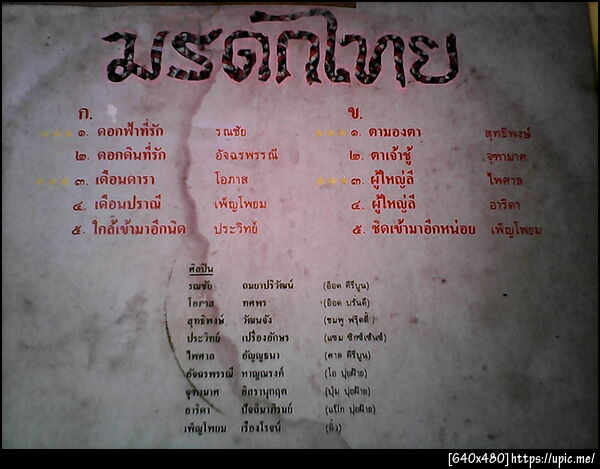 มรดกไทย
ก.
*** ๑. ดอกฟ้าที่รัก รณชัย
๒. ดอกดินที่รัก อัจฉรพรรณี
*** ๓. เดือนดารา โอภาส
๔. เดือนปราณี เพ็ญโพยม
๕. ใกล้เข้ามาอีกนิด ประวิทย์
ข.
*** ๑. ตามองตา สุทธิพงษ์
๒. ตาเจ้าชู้ จุฑามาศ
*** ๓. ผู้ใหญ่ลี ไพศาล
๔. ผู้ใหญ่ลี อาริดา
๕. ชิดเข้ามาอีกหน่อย เพ็ญโพยม
ศิลปิน
รณชัย ถมยาปริวัฒน์ (อ๊อด คีรีบูน)
โอภาส ทศพร (อ๊อด บรั่นดี)
สุทธิพงษ์ วัฒนจัง (ชมพู ฟรุ๊ตตี้)
ประวิทย์ เปรื่องอักษร (แซม ซิกซ์เซ้นซ์)
ไพศาล อัญญธนา (ศาล คีรีบูน)
อัจฉรพรรณี หาญณรงค์ (โอ ปุยฝ้าย)
จุฑามาศ อิสรานุกฤต (ปุ้ม ปุยฝ้าย)
อาริดา ปัจฉิมาภิรมย์ (แป๊ก ปุยฝ้าย)
เพ็ญโพยม เรืองโรจน์ (ติ๋ว)
[640x480]https://upic.me/